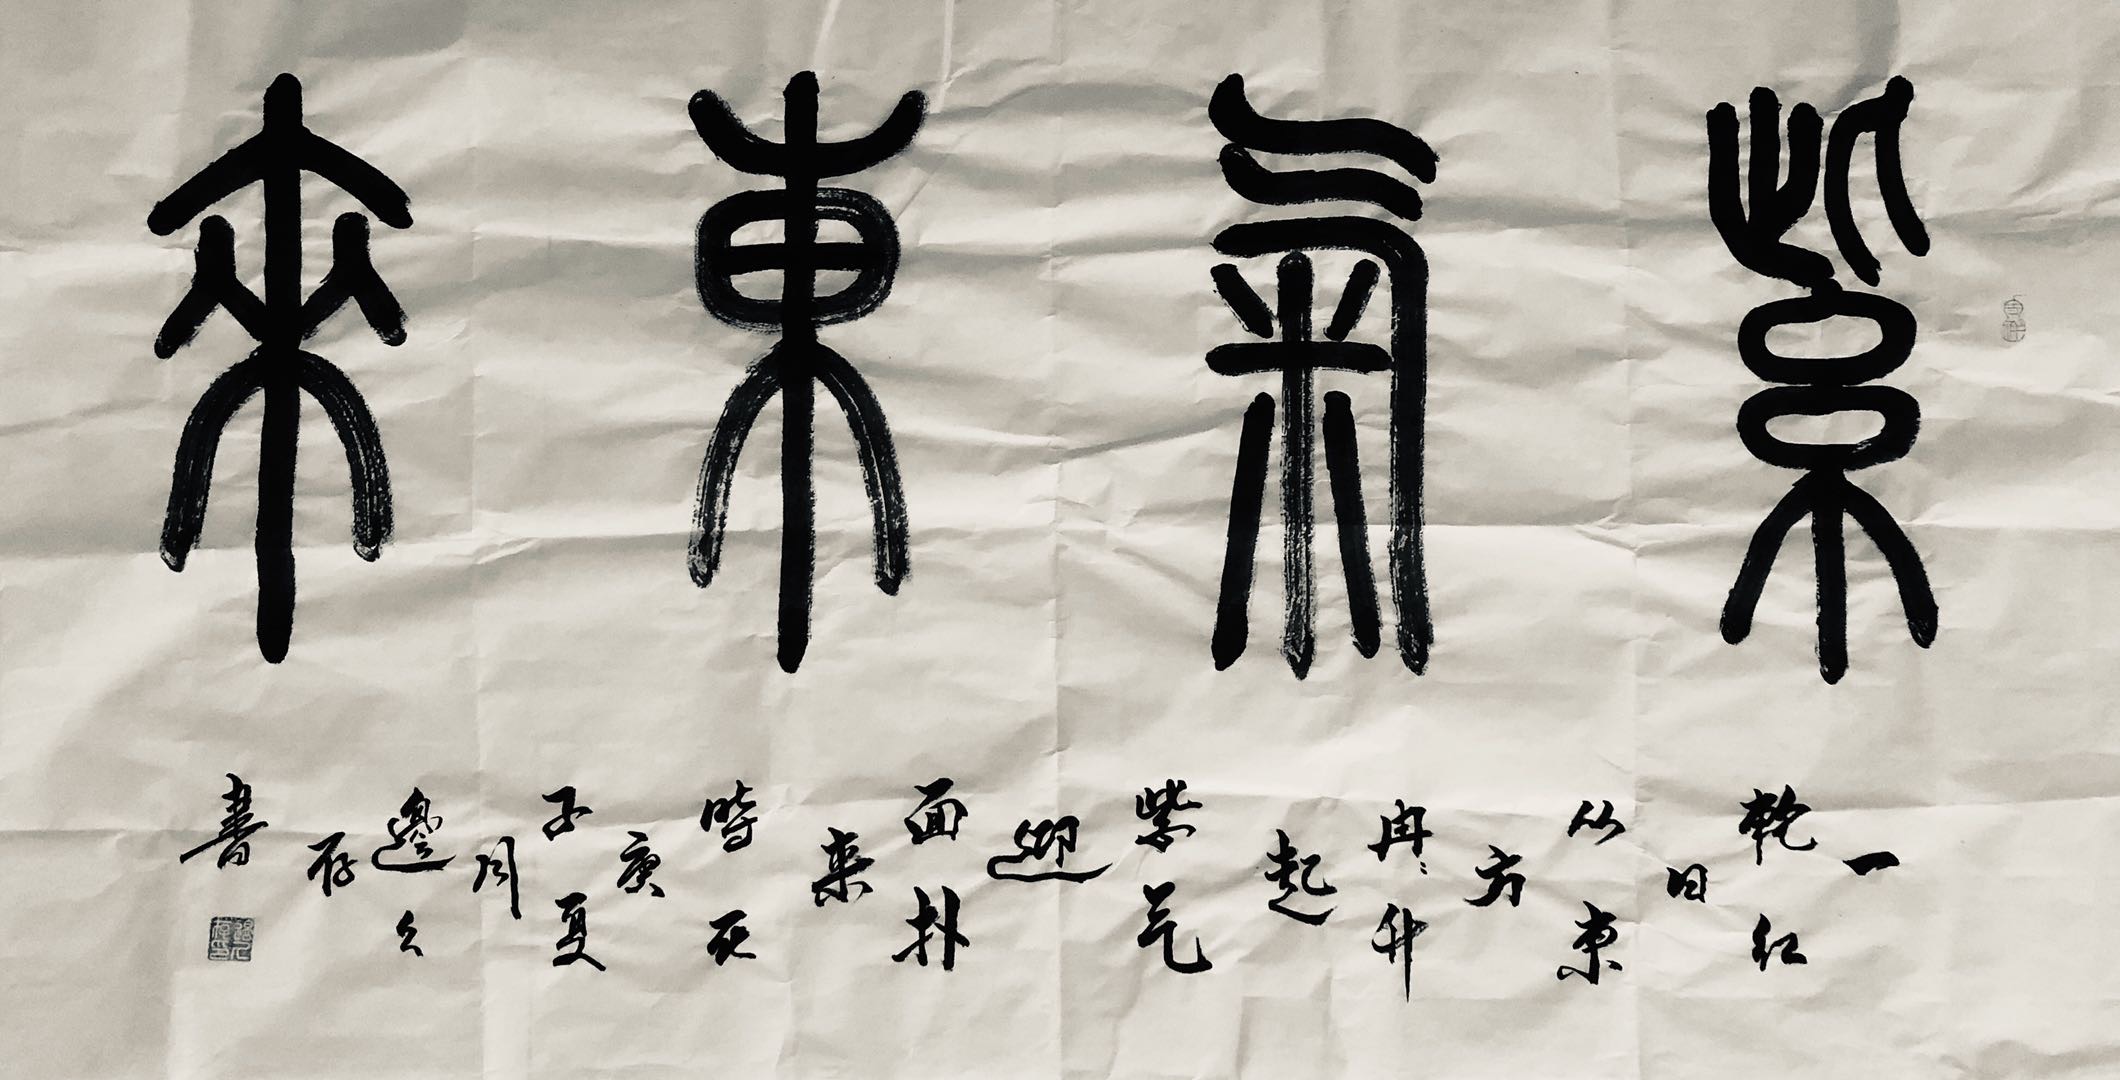 紫氣東來
一輪红日从東方冉冉升起紫气迎面扑来時在庚子夏月邊久存書